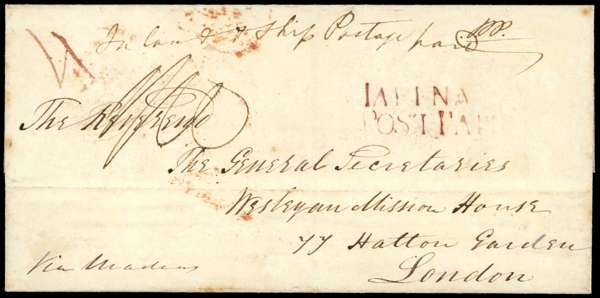 Inland & Ship Postage paid
JAFFNA
POST PAID
The Reverend
The General Secretaries
Wesleyan Mission House
77 Hatton Garden
London
Via Madras